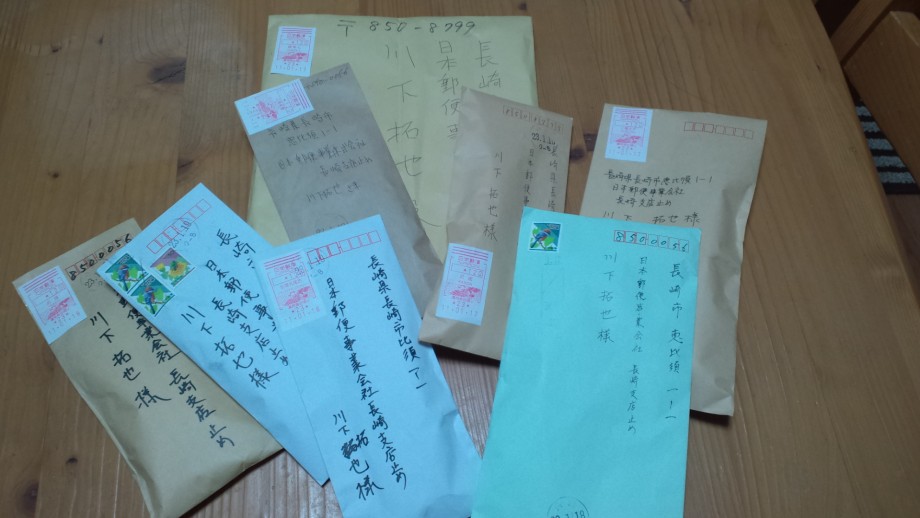 〒850-8799
長崎
日本郵便事
川下拓也
長崎県長崎市
恵比須1-1
日本郵便事業株式会社
長崎支店止め
川下拓也様
長崎県長崎
日本郵便事
川下拓也様
長崎県長崎市恵比須1-1
日本郵便事業会社
長崎支店止め
川下拓也様
8500056
便事業会社 長崎支店止め
川下拓也様
長崎市
日本郵便事
長崎支店止
川下拓也様
長崎県長崎市比須一ー一
日本郵便事業会社長崎支店止め
川下拓也様
8500056
長崎市恵比須一ー一
日本郵便事業会社 長崎支店止め
川下拓也様